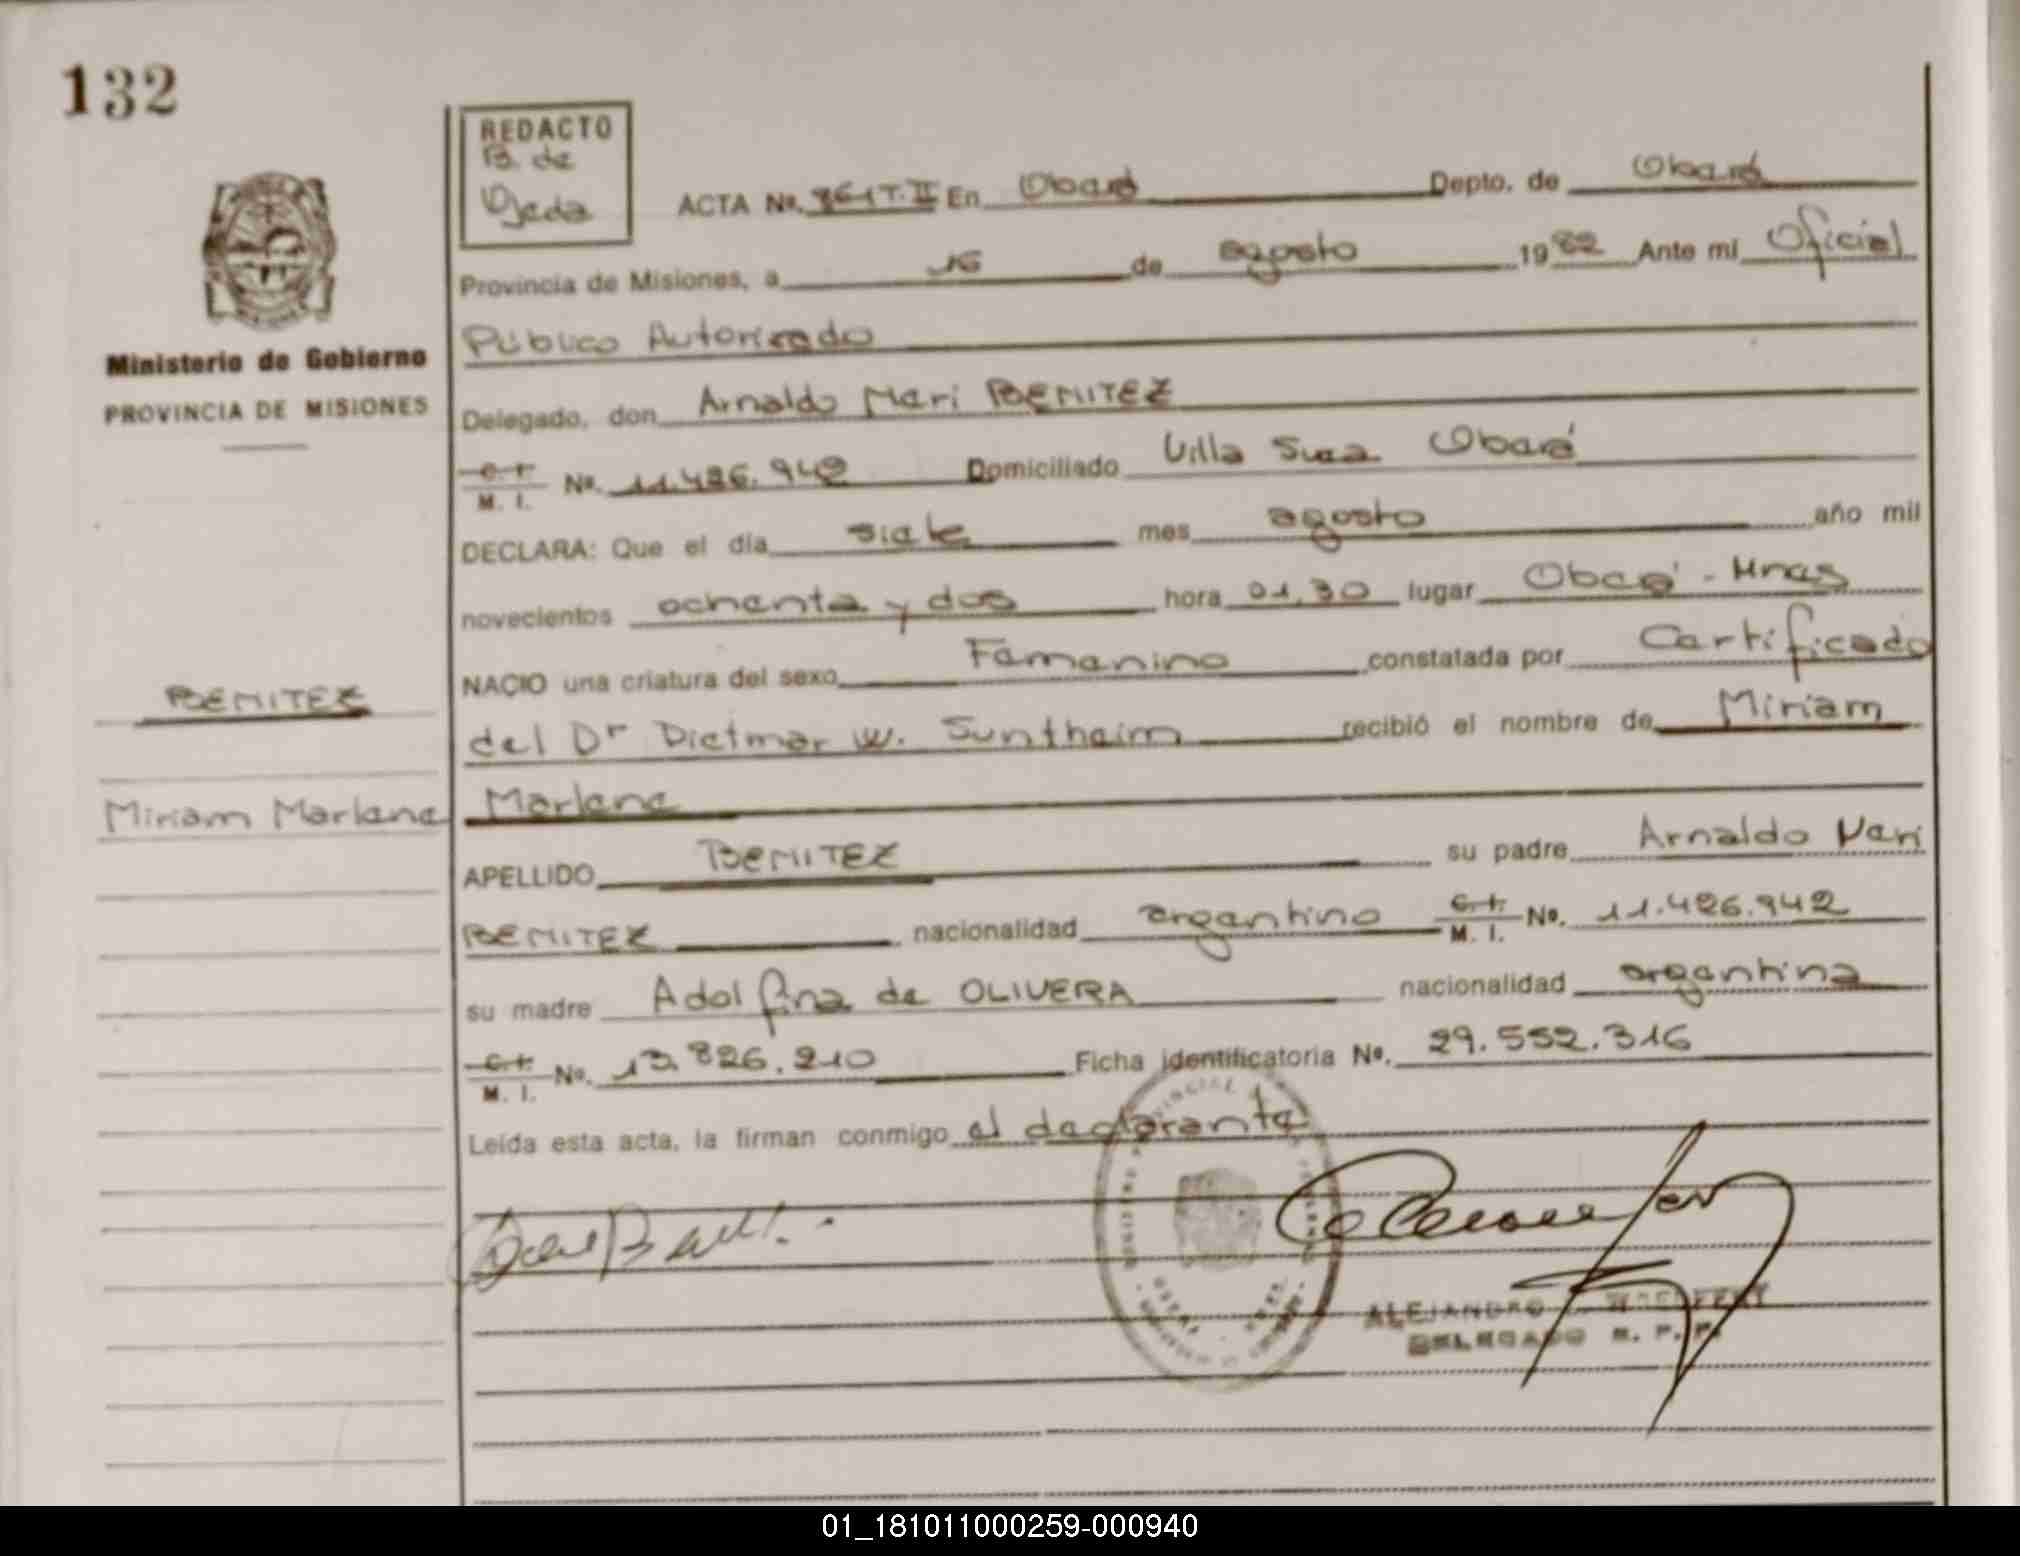 132
REDACTO
B. de
Ojeda
ACTA No. 861 T. II En Oberá Depto. de Oberá
Provincia de Misiones, a 16 de agosto 1982 Ante mí Oficial
Público Autorizado
Ministerio de Gobierno
PROVINCIA DE MISIONES
Delegado, don Arnaldo Neri BENITEZ
C. I. M. I. No. 11.426.942 Domiciliado Villa Oberá
DECLARA: Que el día siete mes agosto año mil
novecientos ochenta y dos hora 01,30 lugar Oberá - Mnes
NACIO una criatura del sexo Femenino constatada por Certificado
del Dr Dietmar W. Suntheim recibió el nombre de Miriam
Marlene
BENITEZ
Miriam Marlene
APELLIDO BENITEZ su padre Arnaldo Neri
BENITEZ nacionalidad argentino C. I. M. I. No. 11.426.942
su madre Adolfina de OLIVERA nacionalidad argentina
C. I. M. I. No. 13.826.210 Ficha identificatoria No. 29.552.316
Leída esta acta, la firman conmigo el declarante
ALEJANDRO
DELEGADO R. P. P.
01_181011000259-000940